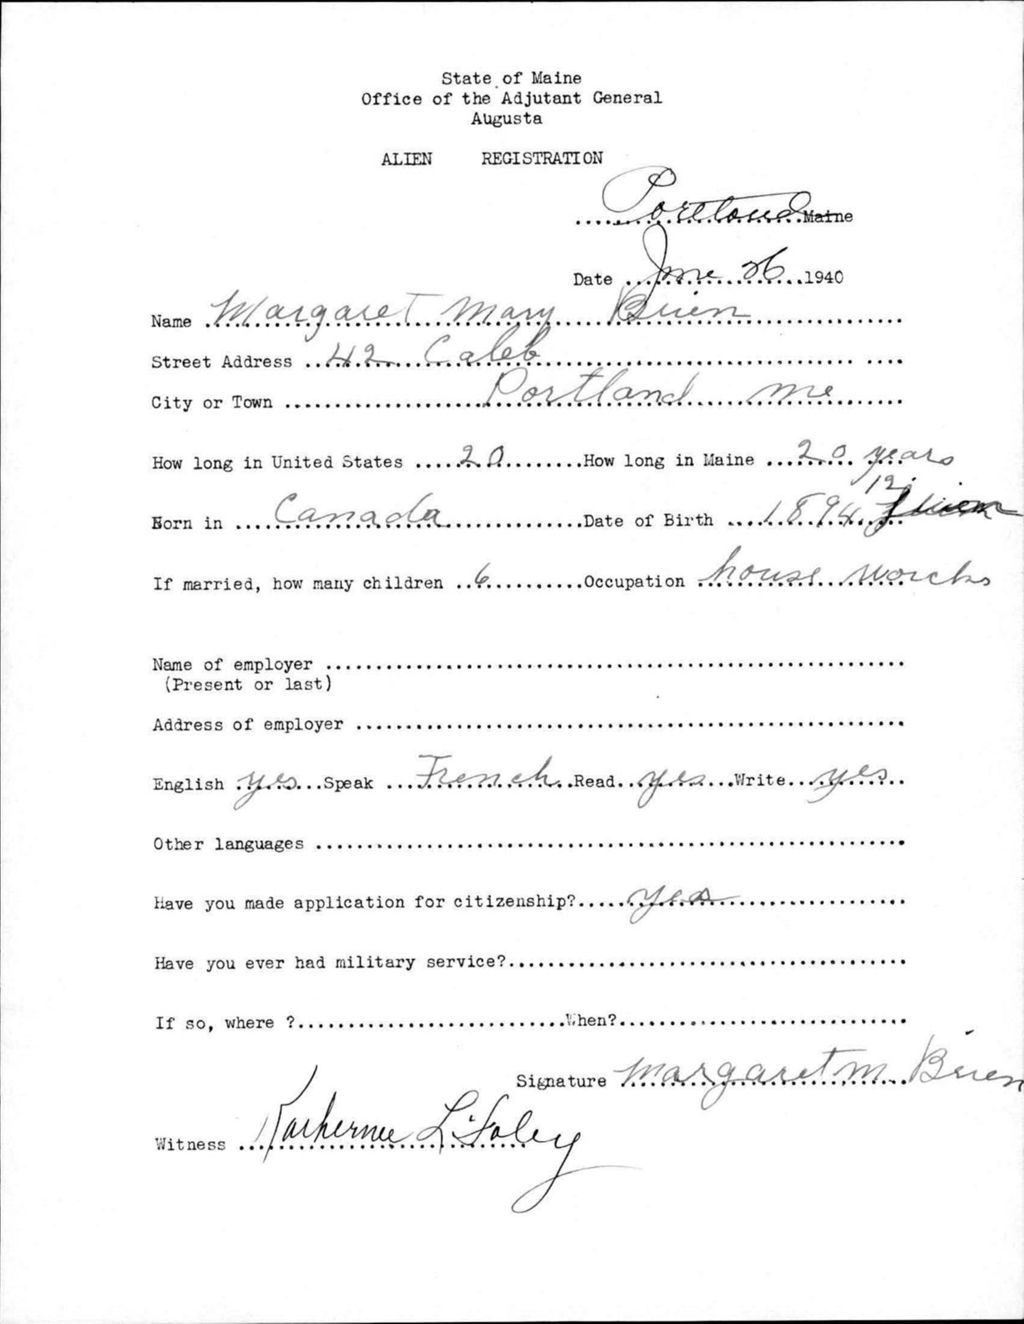 State of Maine
Office of the Adjutant General
Augusta
ALIEN REGISTRATION
Portland Maine
Date June 26 1940
Name Margaret Mary
Street Address 42 Caleb
City or Town Portland Me
How long in United States 20 How long in Maine 20 years
Born in Canada Date of Birth 1894 12
If married, how many children 6 Occupation house works
Name of employer
(Present or last)
Address of employer
English yes Speak French Read yes Write yes
Other languages
Have you made application for citizenship? yes
Have you ever had military service?
If so, where ? When?
Signature Margaret M.
Witness L. Foley